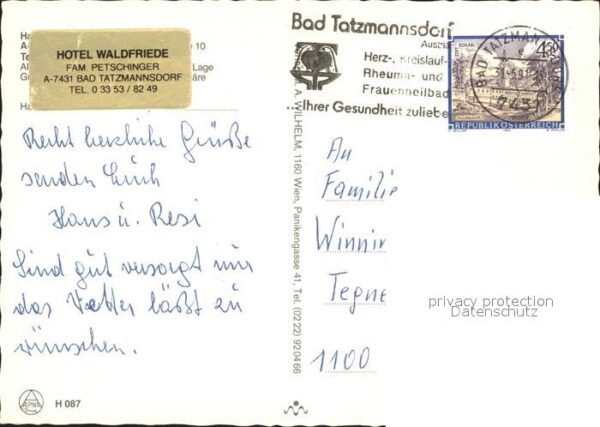 HOTEL WALDFRIEDE
FAM. PETSCHINGER
A-7431 BAD TATZMANNSDORF
TEL. 0 33 53 / 82 49
Ha
A-
10
Te
Lage
äre
Ha
Recht herzliche Grüße
senden Euch
Hans u. Resi
Sind gut versorgt nur
das Wetter läßt zu
wünschen.
H 087
A. WILHELM, 1160 Wien, Panikengasse 41, Tel. (0222) 92 04 66
Bad Tatzmannsdorf
Herz-, Kreislauf-
Rheuma- und
Frauenheilbad
...Ihrer Gesundheit zuliebe
BAD TATZMANNSDORF
7431
REPUBLIK ÖSTERREICH
An
Familie
Winnin
Tegne
1100
privacy protection
Datenschutz